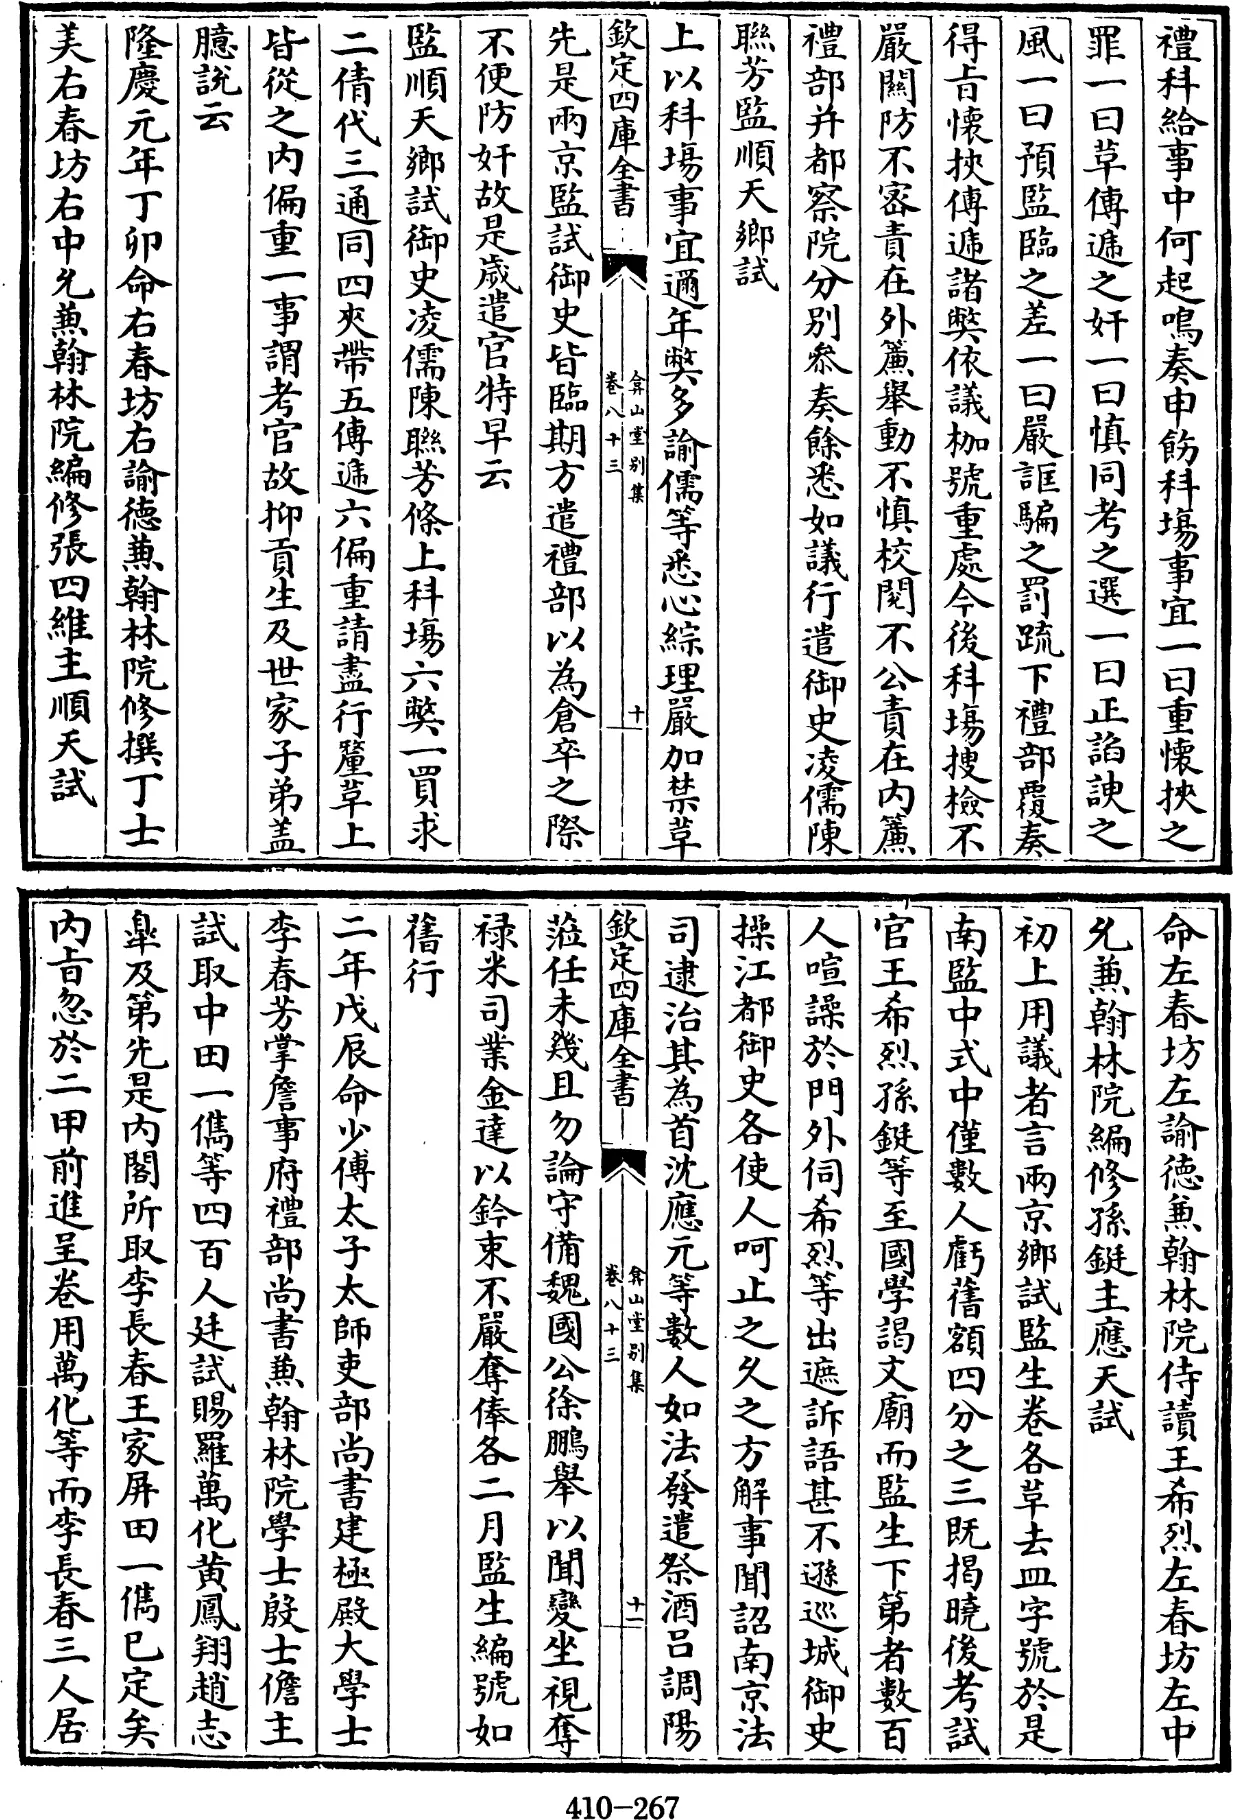 禮科給事中何起鳴奏申飭科場事宜一曰重懷挾之
罪一曰草傳遞之奸一曰慎同考之選一曰正諂諛之
風一曰預監臨之差一曰嚴誆騙之罰疏下禮部覆奏
得旨懷挾傳遞諸弊依議枷號重處今後科場搜檢不
嚴關防不密責在外簾舉動不慎校閱不公責在内簾
禮部并都察院分别叅奏餘悉如議行遣御史凌儒陳
聯芳監順天鄉試
上以科場事宜邇年弊多諭儒等悉心綜理嚴加禁草
欽定四庫全書
弇山堂别集
卷八十三
十
先是兩京監試御史皆臨期方遣禮部以為倉卒之際
不便防奸故是歲遣官特早云
監順天鄉試御史凌儒陳聯芳條上科場六弊一買求
二倩代三通同四夾帶五傳遞六偏重請盡行釐草上
皆從之内偏重一事謂考官故抑貢生及世家子弟盖
臆說云
隆慶元年丁卯命右春坊右諭德兼翰林院修撰丁士
美右春坊右中允兼翰林院編修張四維主順天試
命左春坊左諭德兼翰林院侍讀王希烈左春坊左中
允兼翰林院編修孫鋌主應天試
初上用議者言兩京鄉試監生卷各草去皿字號於是
南監中式中僅數人虧舊額四分之三既揭曉後考試
官王希烈孫鋌等至國學謁文廟而監生下第者數百
人喧譟於門外伺希烈等出遮訴語甚不遜巡城御史
操江都御史各使人呵止之久之方解事聞詔南京法
司逮治其為首沈應元等數人如法發遣祭酒吕調陽
欽定四庫全書
弇山堂别集
卷八十三
十一
蒞任未幾且勿論守備魏國公徐鵬舉以聞變坐視奪
禄米司業金達以鈐束不嚴奪俸各二月監生編號如
舊行
二年戊辰命少傅太子太師吏部尚書建極殿大學士
李春芳掌詹事府禮部尚書兼翰林院學士殷士儋主
試取中田一儁等四百人廷試賜羅萬化黄鳳翔趙志
臯及第先是内閣所取李長春王家屏田一儁已定矣
内旨忽於二甲前進呈卷用萬化等而李長春三人居
410-267